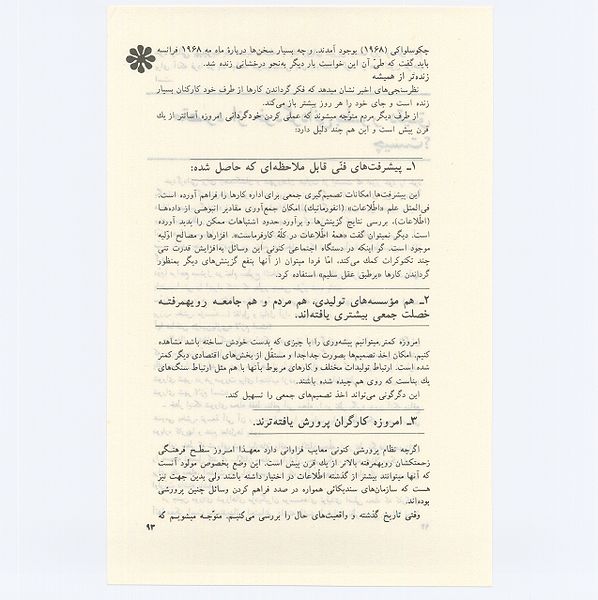 چکوسلواکی (۱۹۶۸) بوجود آمدند. و چه بسیار سخن‌ها دربارهٔ ماه مه ۱۹۶۸ فرانسه
باید گفت که طیّ آن این خواست بار دیگر به‌نحو درخشانی زنده شد.
زنده‌تر از همیشه
نظرسنجی‌های اخیر نشان میدهد که فکر گرداندن کارها از طرف خود کارکنان بسیار
زنده است و جای خود را هر روز بیشتر باز می‌کند.
از طرف دیگر مردم متوّجه میشوند که عملی کردن خودگردانی امروزه آسانتر از یك
قرن پیش است و این هم چند دلیل دارد:
۱ـ پیشرفت‌های فنّی قابل ملاحظه‌ای که حاصل شده:
این پیشرفت‌ها امکانات تصمیم‌گیری جمعی برای اداره کارها را فراهم آورده است.
فی‌المثل علم «اطّلاعات» (انفورماتیك) امکان جمع‌آوری مقادیر انبوهی از داده‌ها
(اطّلاعات)، بررسی نتایج گزینش‌ها و برآورد حدود اشتباهات ممکن را پدید آورده
است. دیگر نمیتوان گفت «همهٔ اطّلاعات در کلّهٔ کارفرماست». افزارها و مصالح اوّلیه
موجود است. گو اینکه در دستگاه اجتماعی کنونی این وسائل به‌افزایش قدرت تنی
چند تکنوکرات کمك می‌کند، امّا فردا میتوان از آنها بنفع گزینش‌های دیگر بمنظور
گرداندن کارها «برطبق عقل سلیم» استفاده کرد.
۲ـ هم مؤسسه‌های تولیدی، هم مردم و هم جامعه رویهمرفته
خصلت جمعی بیشتری یافته‌اند.
امروزه کمتر میتوانیم پیشه‌وری را با چیزی که بدست خودش ساخته باشد مشاهده
کنیم. امکان اخذ تصمیم‌ها بصورت جداجدا و مستقّل از بخش‌های اقتصادی دیگر کمتر
شده است. ارتباط تولیدات مختلف و کارهای مربوط بآنها با هم مثل ارتباط سنگ‌های
یك بناست که روی هم چیده شده باشند.
این دگرگونی می‌تواند اخذ تصمیم‌های جمعی را تسهیل کند.
۳ـ امروزه کارگران پرورش یافته‌ترند.
اگرچه نظام پرورشی کنونی معایب فراوانی دارد معهـذا امـروز سطـح فرهنگـی
زحمتکشان رویهمرفته بالاتر از یك قرن پیش است. این وضع بخصوص مولود آنست
که آنها میتوانند بیشتر از گذشته اطّلاعات در اختیار داشته باشند ولی بدین جهت نیز
هست که سازمان‌های سندیکائی همواره در صدد فراهم کردن وسائل چنین پرورشی
بوده‌اند.
وقتی تاریخ گذشته و واقعیت‌های حال را بررسی می‌کنیم، متوّجه میشویم که
۹۳